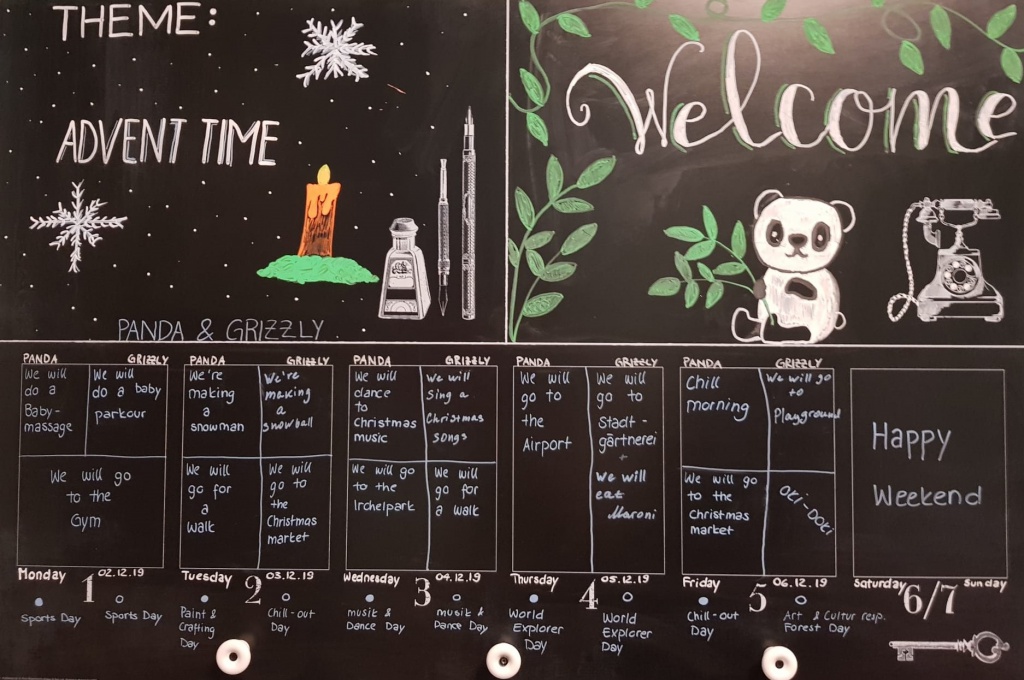 THEME:
ADVENT TIME
PANDA & GRIZZLY
Welcome
PANDA
GRIZZLY
We will
do a
Baby-
massage
We will
do a baby
parkour
We will go
to the
Gym
Monday
1
02.12.19
Sports Day
Sports Day
PANDA
GRIZZLY
We're
making
a
snowman
We're
making
a
snowball
We will
go for
a
walk
We will
go to
the
Christmas
market
Tuesday
2
03.12.19
Paint &
Crafting
Day
Chill-out
Day
PANDA
GRIZZLY
We will
dance
to
Christmas
music
We will
Sing a
Christmas
songs
We will go
to the
Irchelpark
We will
go for
a walk
Wednesday
3
04.12.19
musik &
Dance Day
musik &
Dance Day
PANDA
GRIZZLY
We will
go to
the
Airport
We will
go to
Stadt-
gärtnerei
+
We will
eat
Maroni
Thursday
4
05.12.19
World
Explorer
Day
World
Explorer
Day
PANDA
GRIZZLY
Chill
morning
We will go
to
Playground
We will go
to the
Christmas
market
Oki-Doki
Friday
5
06.12.19
Chill-out
Day
Art & Cultur resp.
Forest Day
Happy
Weekend
Saturday
6/7
Sunday